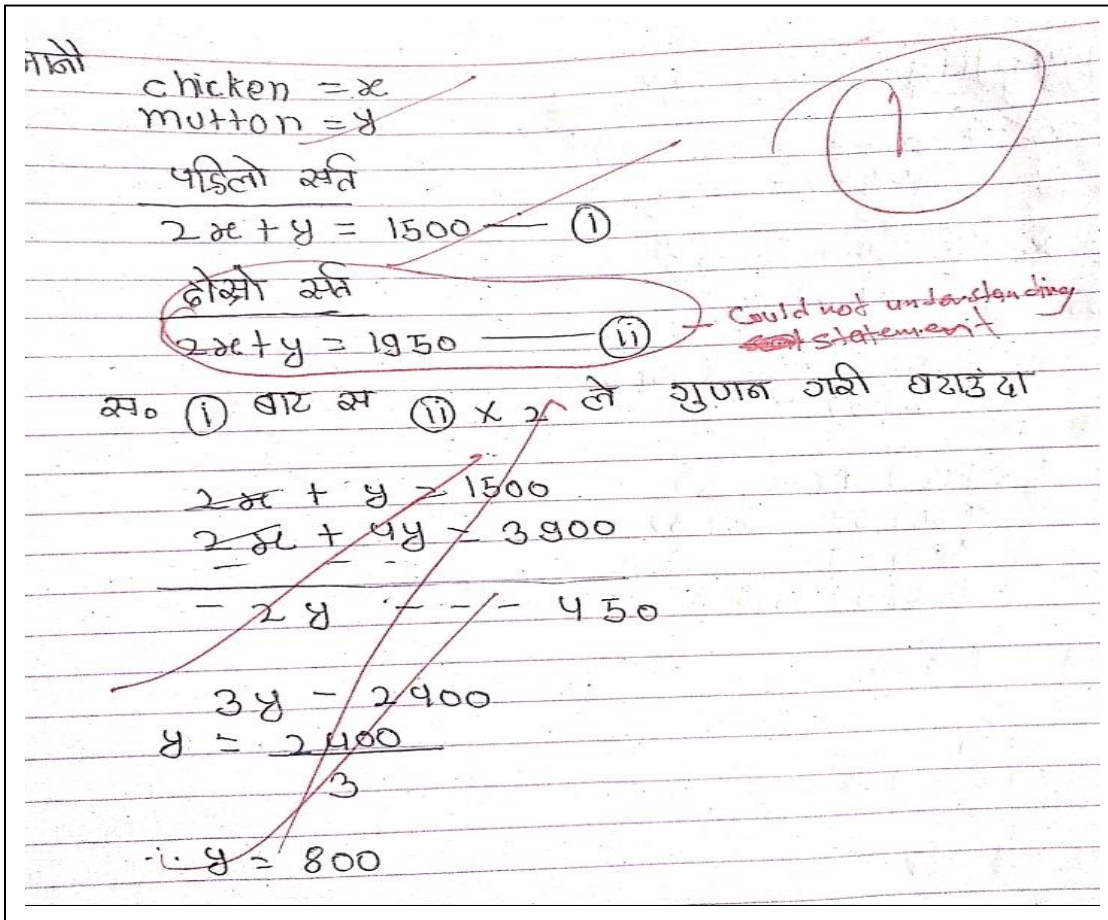 मानौ
chicken = x
mutton = y
पहिलो सर्त
2x + y = 1500 — (i)
दोस्रो सर्त
2x + y = 1950 — (ii)
Could not understanding
statement
स० (i) बाट स (ii) × 2 ले गुणन गरी घटाउंदा
2x + y = 1500
2x + 4y = 3900
- - -
- 2y - - - 450
3y - 2400
y = 2400
3
∴ y = 800
1